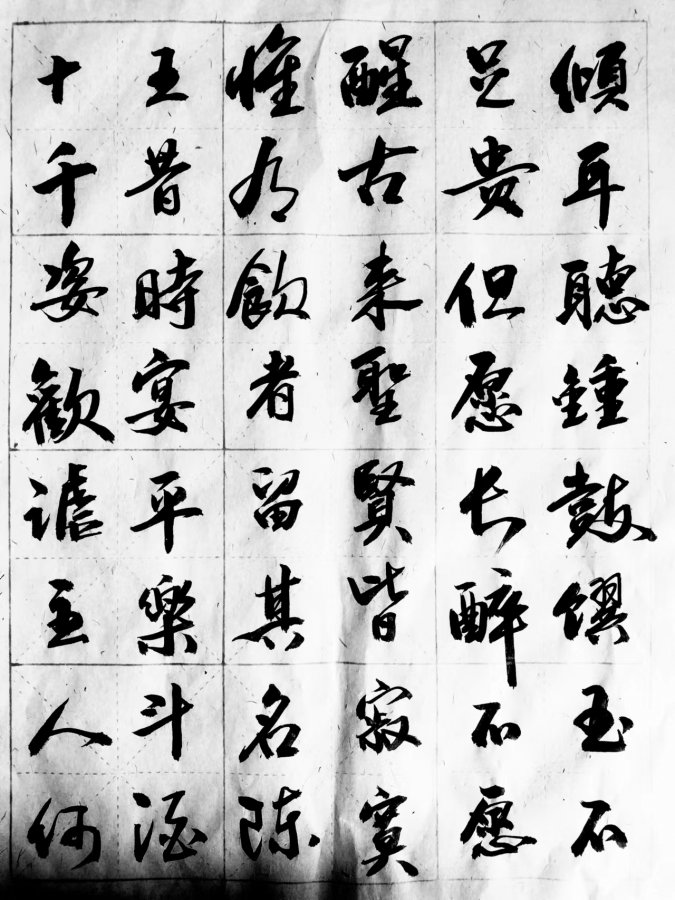 傾耳聽鍾鼓饌玉不
足贵但愿长醉不愿
醒古来聖賢皆寂寞
惟有飲者留其名陈
王昔時宴平樂斗酒
十千姿歡谑主人何